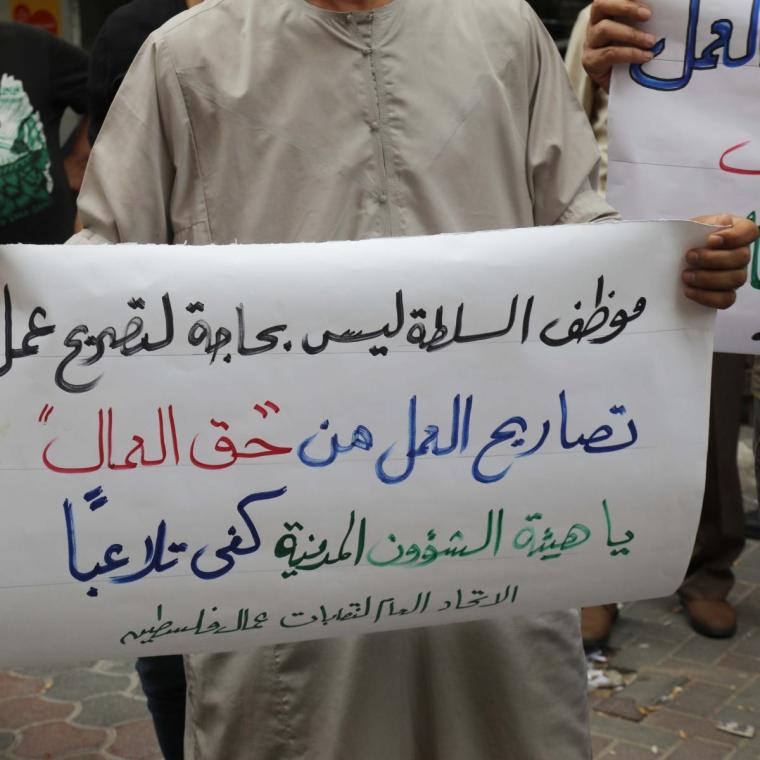 موظف السلطة ليس بحاجة لتصريح عمل
تصاريح العمل من "حق العمال"
يا هيئة الشؤون المدنية كفى تلاعبًا
الاتحاد العام لنقابات عمال فلسطين
العمل